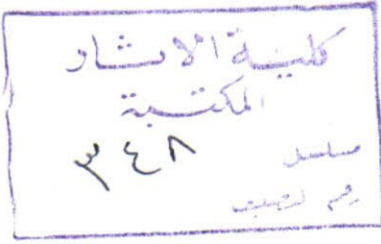 كلية الآثار
المكتبة
مسلسل ٣٤٨
رقم التصنيف